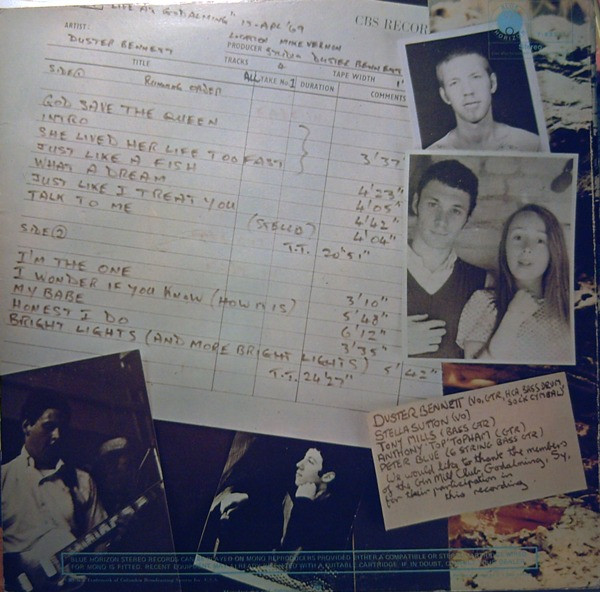 LIFE AT GODALMING" 19-APL '69
CBS RECOR
ARTIST:
DUSTER BENNETT
LOCATION MIKE VERNON
PRODUCER DUSTER BENNETT
TITLE
TRACKS 2
ALL TAKE No. 1
DURATION
TAPE WIDTH 1"
COMMENTS
SIDE ① RUNNING ORDER
GOD SAVE THE QUEEN
INTRO
SHE LIVED HER LIFE TOO FAST 3'37"
JUST LIKE A FISH 4'23"
WHAT A DREAM 4'05"
JUST LIKE I TREAT YOU 4'42"
TALK TO ME (STELLA) 4'04"
T.T. 20'51"
SIDE ②
I'M THE ONE 3'10"
I WONDER IF YOU KNOW (HOW IT IS) 5'48"
MY BABE 6'12"
HONEST I DO 3'35"
BRIGHT LIGHTS (AND MORE BRIGHT LIGHTS) 5'42"
T.T. 24'27"
DUSTER BENNETT (VO, GTR, HCA, BASS DRUM,
SOCK CYMBALS)
STELLA SUTTON (VO)
TONY MILLS (BASS GTR)
ANTHONY "TOP" TOPHAM (GTR)
PETER BLUE (6 STRING BASS GTR)
We would like to thank the members
of the Gin Mill Club, Godalming, Sy.
for their participation in
this recording.
HORIZON
Stereo
BLUE HORIZON STEREO RECORDS CAN BE PLAYED ON MONO REPRODUCERS PROVIDED EITHER A COMPATIBLE OR STEREO
FOR MONO IS FITTED. RECENT EQUIPMENT MAY ALREADY BE FITTED WITH A SUITABLE CARTRIDGE. IF IN DOUBT, CONSULT YOUR DEALER.
Trademark of Columbia Broadcasting System Inc. U.S.A.